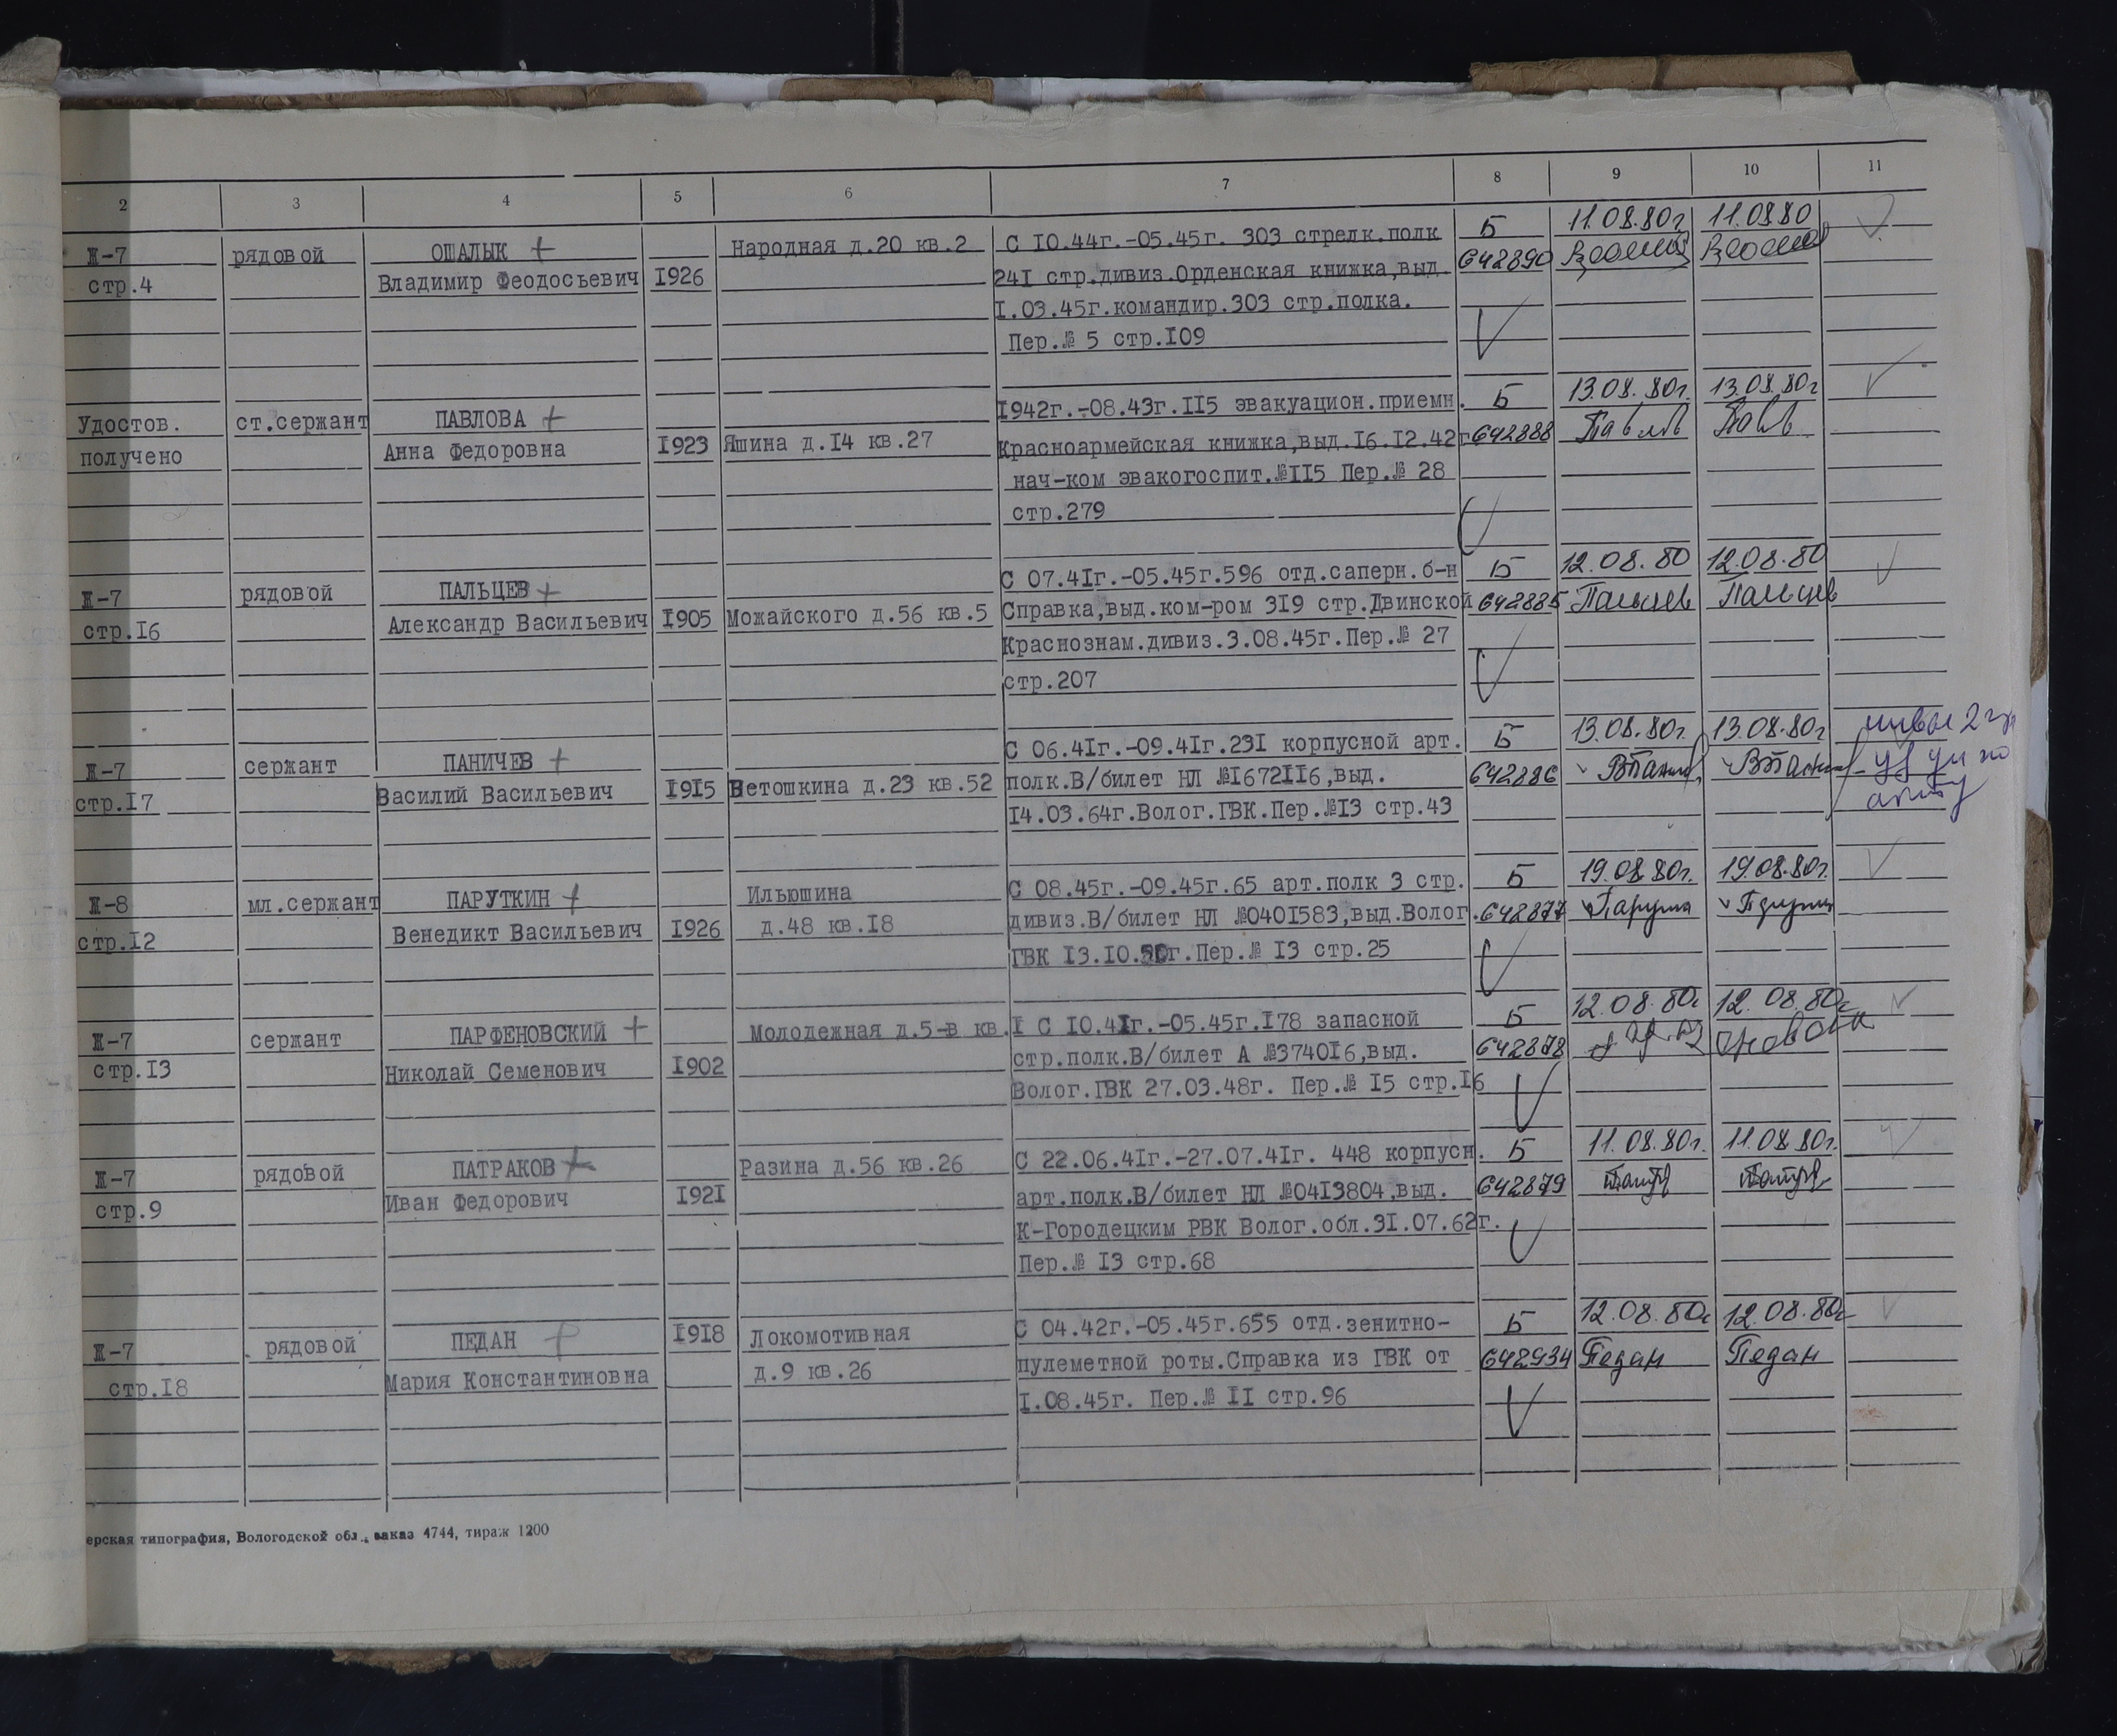 2 3 4 5 6 7 8 9 10 11
Ж-7 рядовой ОШАЛЫК + Народная д.20 кв.2 С 10.44г.-05.45г. 303 стрелк.полк Б 11.08.80г 11.08.80
стр.4 Владимир Феодосьевич 1926 241 стр.дивиз.Орденская книжка,выд. 642890
1.03.45г.командир.303 стр.полка.
Пер.№ 5 стр.109
Удостов. ст.сержант ПАВЛОВА + 1942г.-08.43г.115 эвакуацион.приемн. Б 13.08.80г. 13.08.80г
получено Анна Федоровна 1923 Яшина д.14 кв.27 Красноармейская книжка,выд.16.12.42г. 642888
нач-ком эвакогоспит.№115 Пер.№ 28
стр.279
Ж-7 рядовой ПАЛЬЦЕВ + С 07.41г.-05.45г.596 отд.саперн.б-н Б 12.08.80 12.08.80
стр.16 Александр Васильевич 1905 Можайского д.56 кв.5 Справка,выд.ком-ром 319 стр.Двинской 642885 Пальцев Пальцев
Краснознам.дивиз.3.08.45г.Пер.№ 27
стр.207
Ж-7 сержант ПАНИЧЕВ + С 06.41г.-09.41г.231 корпусной арт. Б 13.08.80г. 13.08.80г
стр.17 Василий Васильевич 1915 Ветошкина д.23 кв.52 полк.В/билет НЛ №1672116,выд. 642886
14.03.64г.Волог.ГВК.Пер.№13 стр.43
Ж-8 мл.сержант ПАРУТКИН + Ильюшина С 08.45г.-09.45г.65 арт.полк 3 стр. Б 19.08.80г. 19.08.80г.
стр.12 Венедикт Васильевич 1926 д.48 кв.18 дивиз.В/билет НЛ №0401583,выд.Волог. 642877
ГВК 13.10. г.Пер.№ 13 стр.25
Ж-7 сержант ПАРФЕНОВСКИЙ + Молодежная д.5-в кв.1 С 10.41г.-05.45г.178 запасной Б 12.08.80г 12.08.80г
стр.13 Николай Семенович 1902 стр.полк.В/билет А №374016,выд. 642878
Волог.ГВК 27.03.48г. Пер.№ 15 стр.16
Ж-7 рядовой ПАТРАКОВ + Разина д.56 кв.26 С 22.06.41г.-27.07.41г. 448 корпусн. Б 11.08.80г. 11.08.80г.
стр.9 Иван Федорович 1921 арт.полк.В/билет НЛ №0413804,выд. 642879
К-Городецким РВК Волог.обл.31.07.62г.
Пер.№ 13 стр.68
Ж-7 рядовой ПЕДАН 1918 Локомотивная С 04.42г.-05.45г.655 отд.зенитно- Б 12.08.80г 12.08.80г
стр.18 Мария Константиновна д.9 кв.26 пулеметной роты.Справка из ГВК от 642934 Педан Педан
1.08.45г. Пер.№ 11 стр.96
ерская типография, Вологодской обл., заказ 4744, тираж 1200